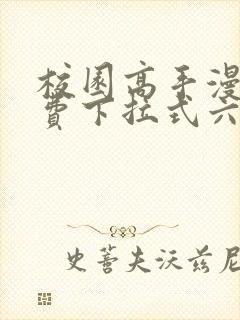 校园高手漫
费下拉式六
史蒂夫沃兹尼